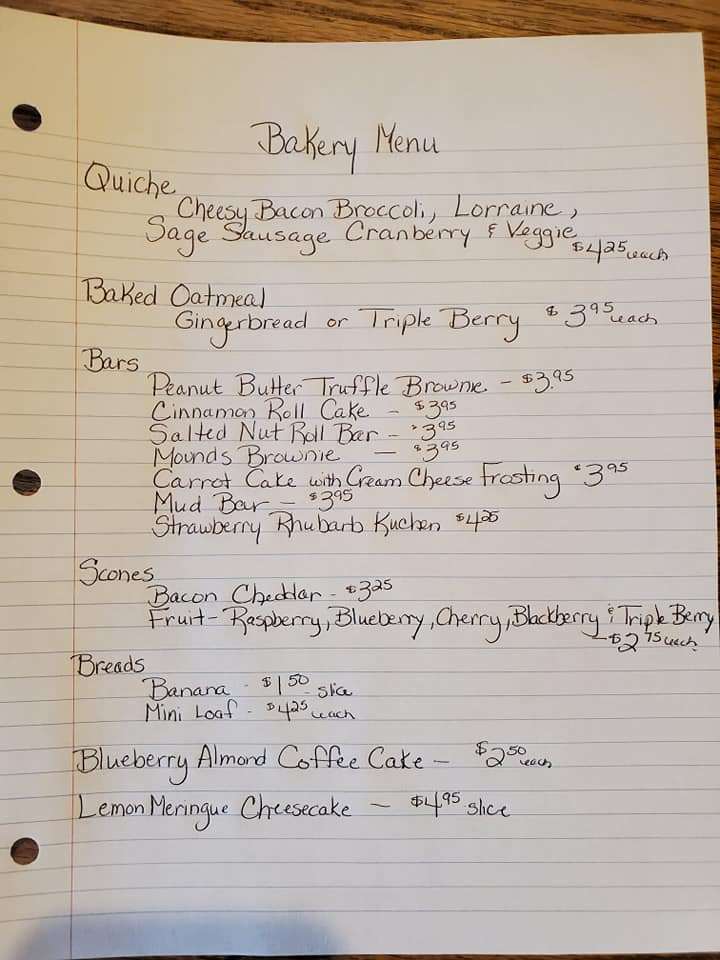 Bakery Menu
Quiche
Cheesy Bacon Broccoli, Lorraine,
Sage Sausage Cranberry & Veggie
$4.25 each
Baked Oatmeal
Gingerbread or Triple Berry $3.95 each
Bars
Peanut Butter Truffle Brownie - $3.95
Cinnamon Roll Cake - $3.95
Salted Nut Roll Bar - $3.95
Mounds Brownie - $3.95
Carrot Cake with Cream Cheese Frosting $3.95
Mud Bar - $3.95
Strawberry Rhubarb Kuchen $4.25
Scones
Bacon Cheddar - $3.25
Fruit - Raspberry, Blueberry, Cherry, Blackberry & Triple Berry
- $2.75 each
Breads
Banana - $1.50 slice
Mini Loaf - $4.25 each
Blueberry Almond Coffee Cake - $2.50 each
Lemon Meringue Cheesecake - $4.95 slice